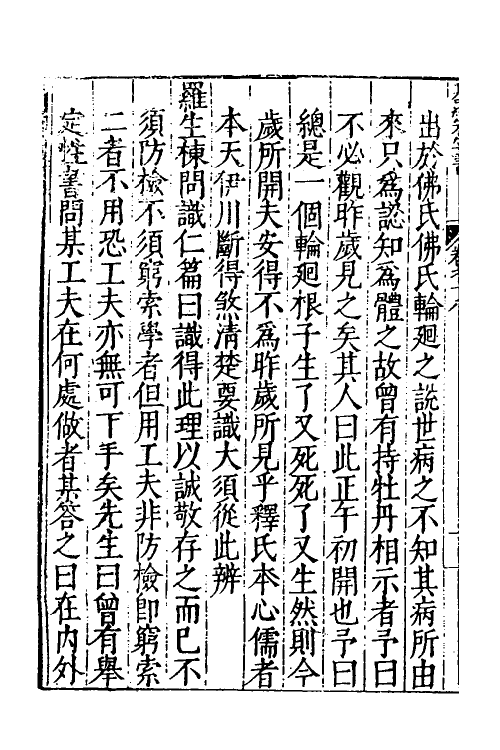 出於佛氏佛氏輪廻之說世病之不知其病所由
來只爲認知爲體之故曾有持牡丹相示者予曰
不必觀昨歲見之矣其人曰此正午初開也予曰
總是一個輪廻根子生了又死死了又生然則今
歲所開夫安得不爲昨歲所見乎釋氏本心儒者
本天伊川斷得煞清楚要識大須從此辨
羅生棟問識仁篇曰識得此理以誠敬存之而已不
須防檢不須窮索學者但用工夫非防檢即窮索
二者不用恐工夫亦無可下手矣先生曰曾有舉
定性書問某工夫在何處做者某答之曰在内外